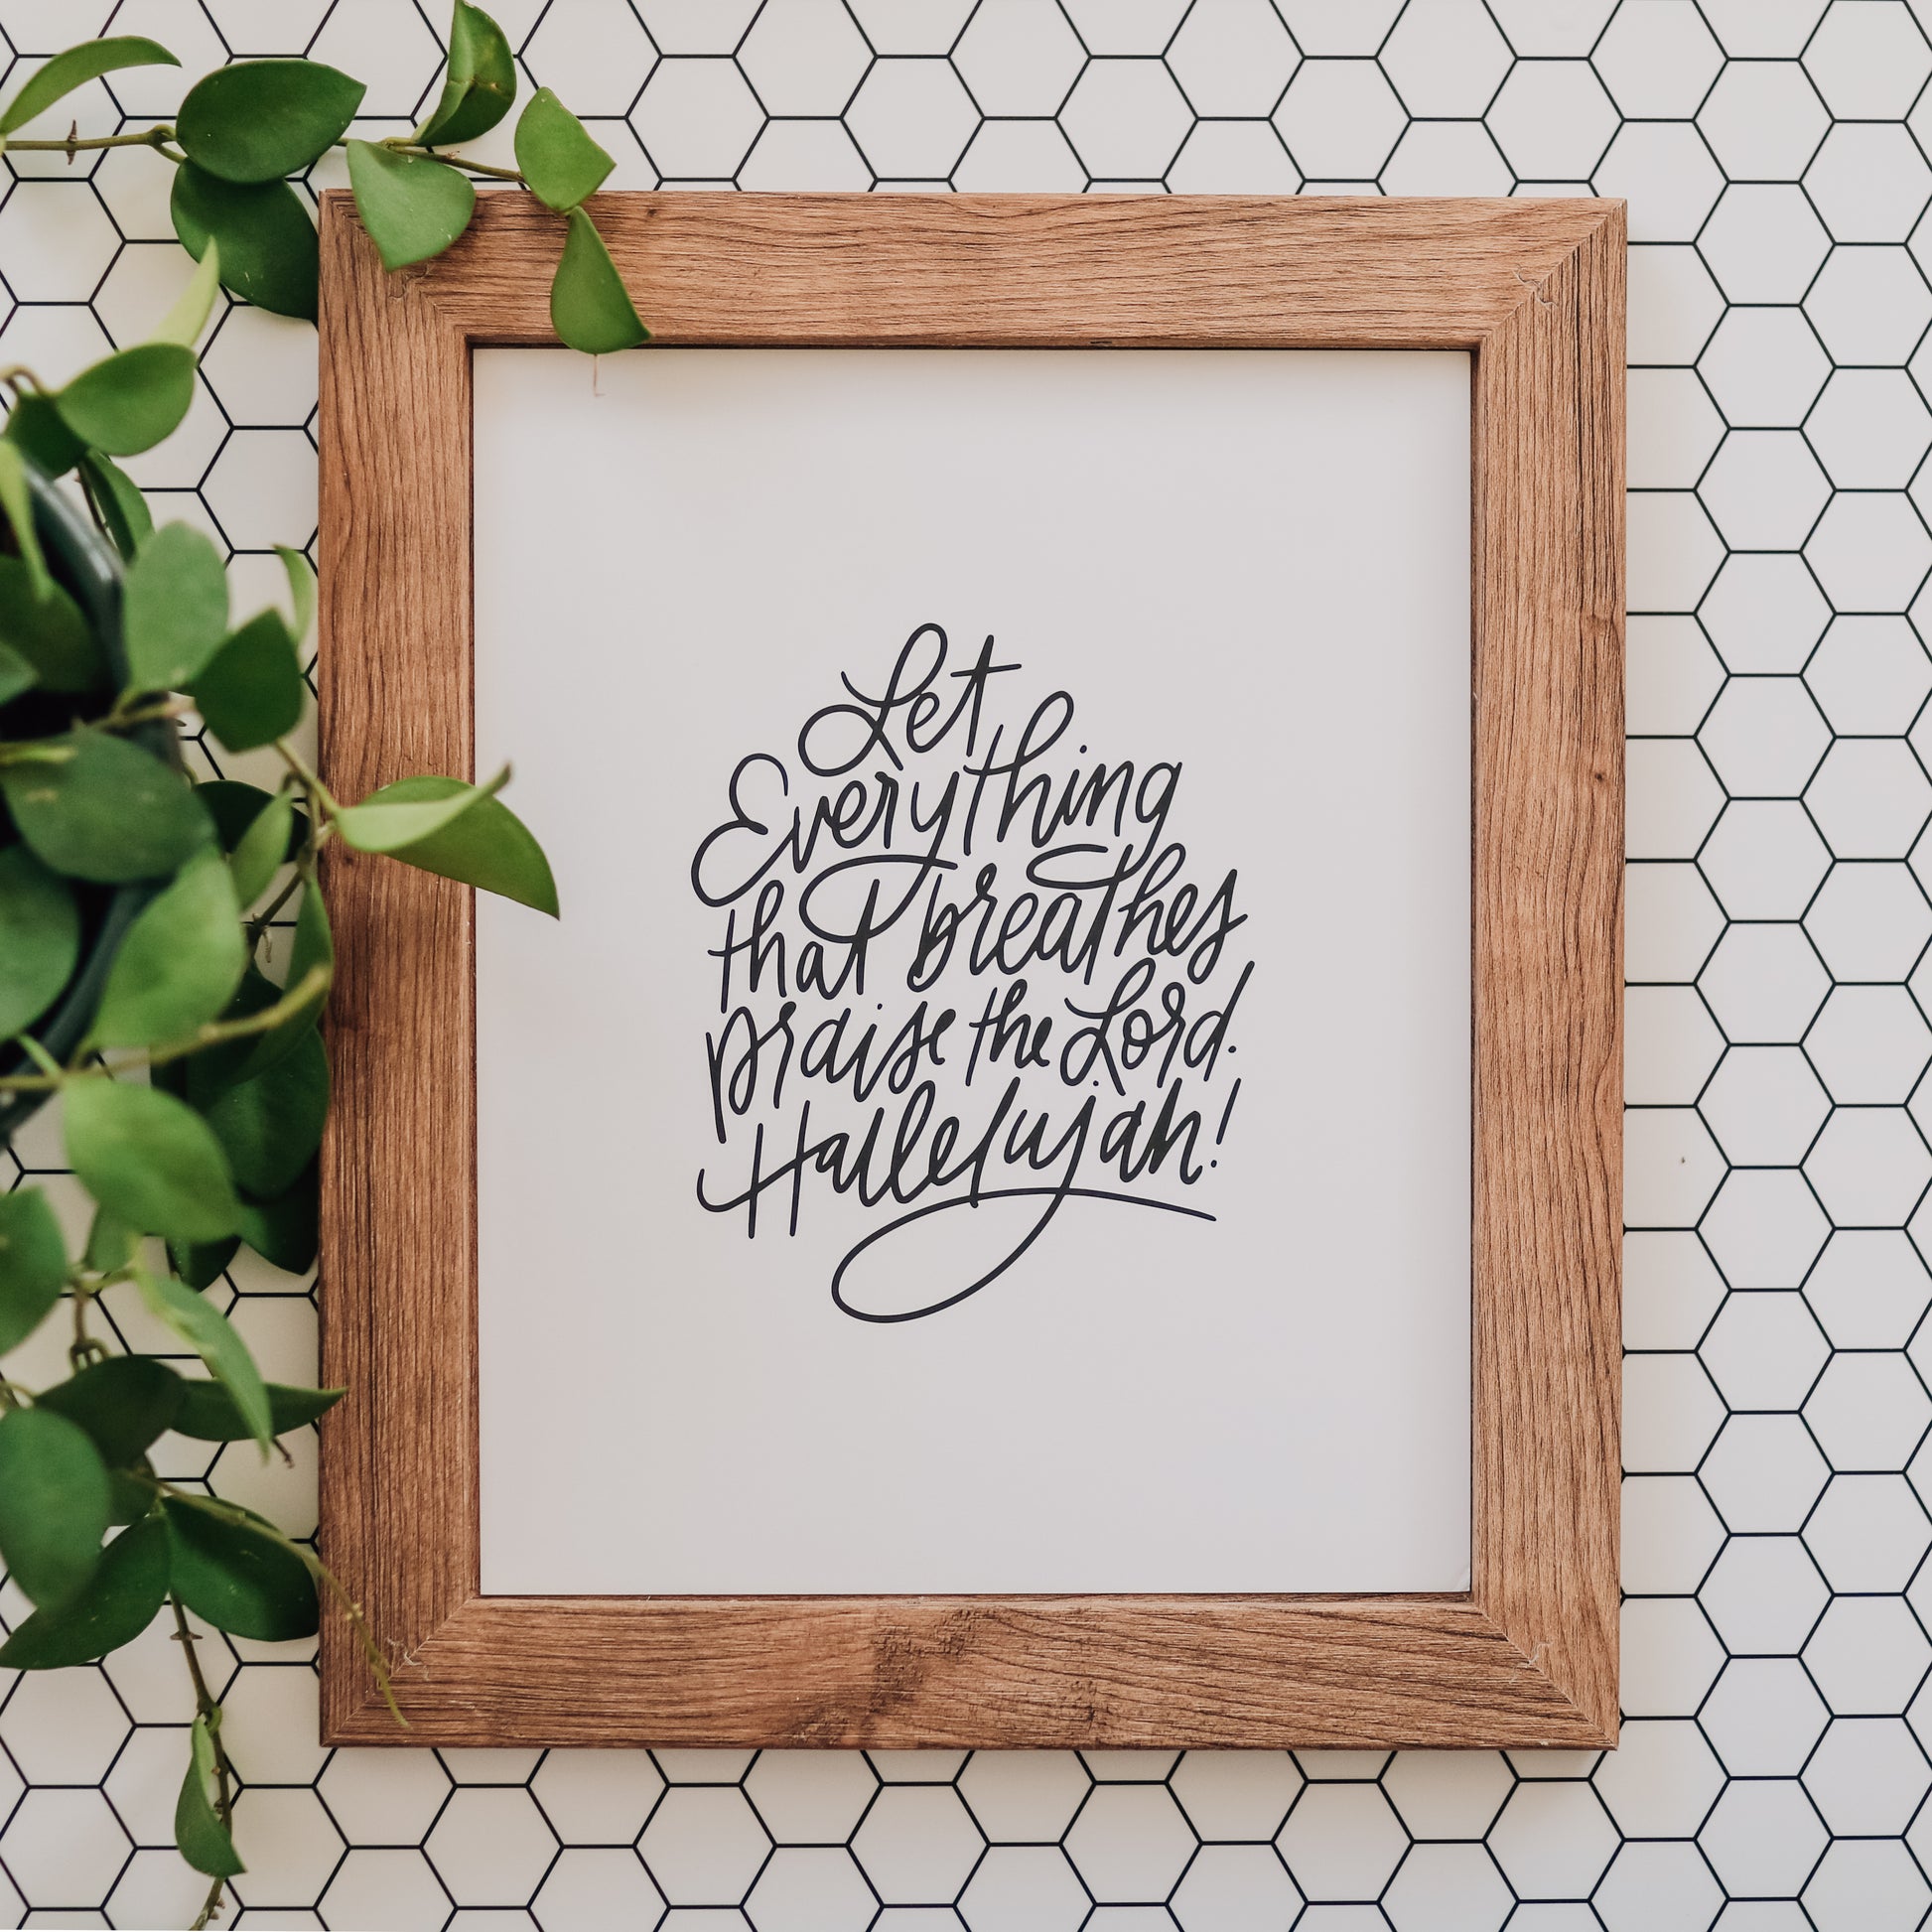 Let
Everything
that breathes
praise the Lord.
Hallelujah!